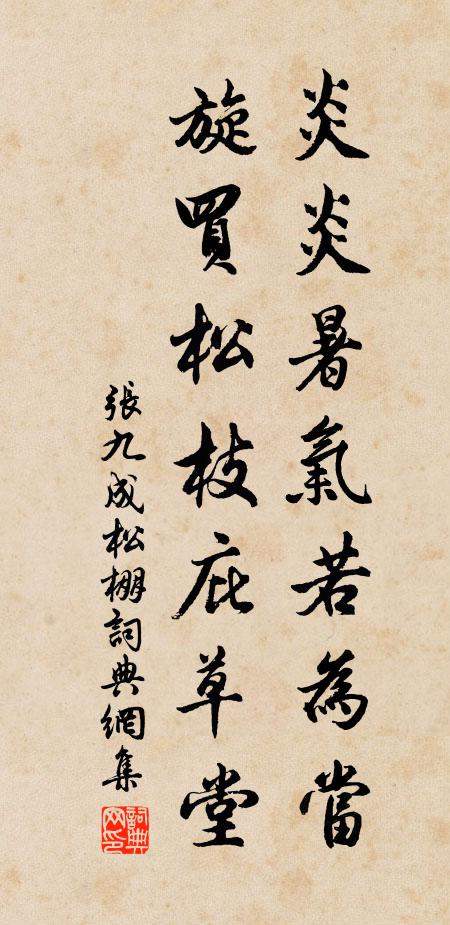 炎炎暑氣若為當
旋買松枝庇草堂
張九成松棚詞典網集
詞典網印